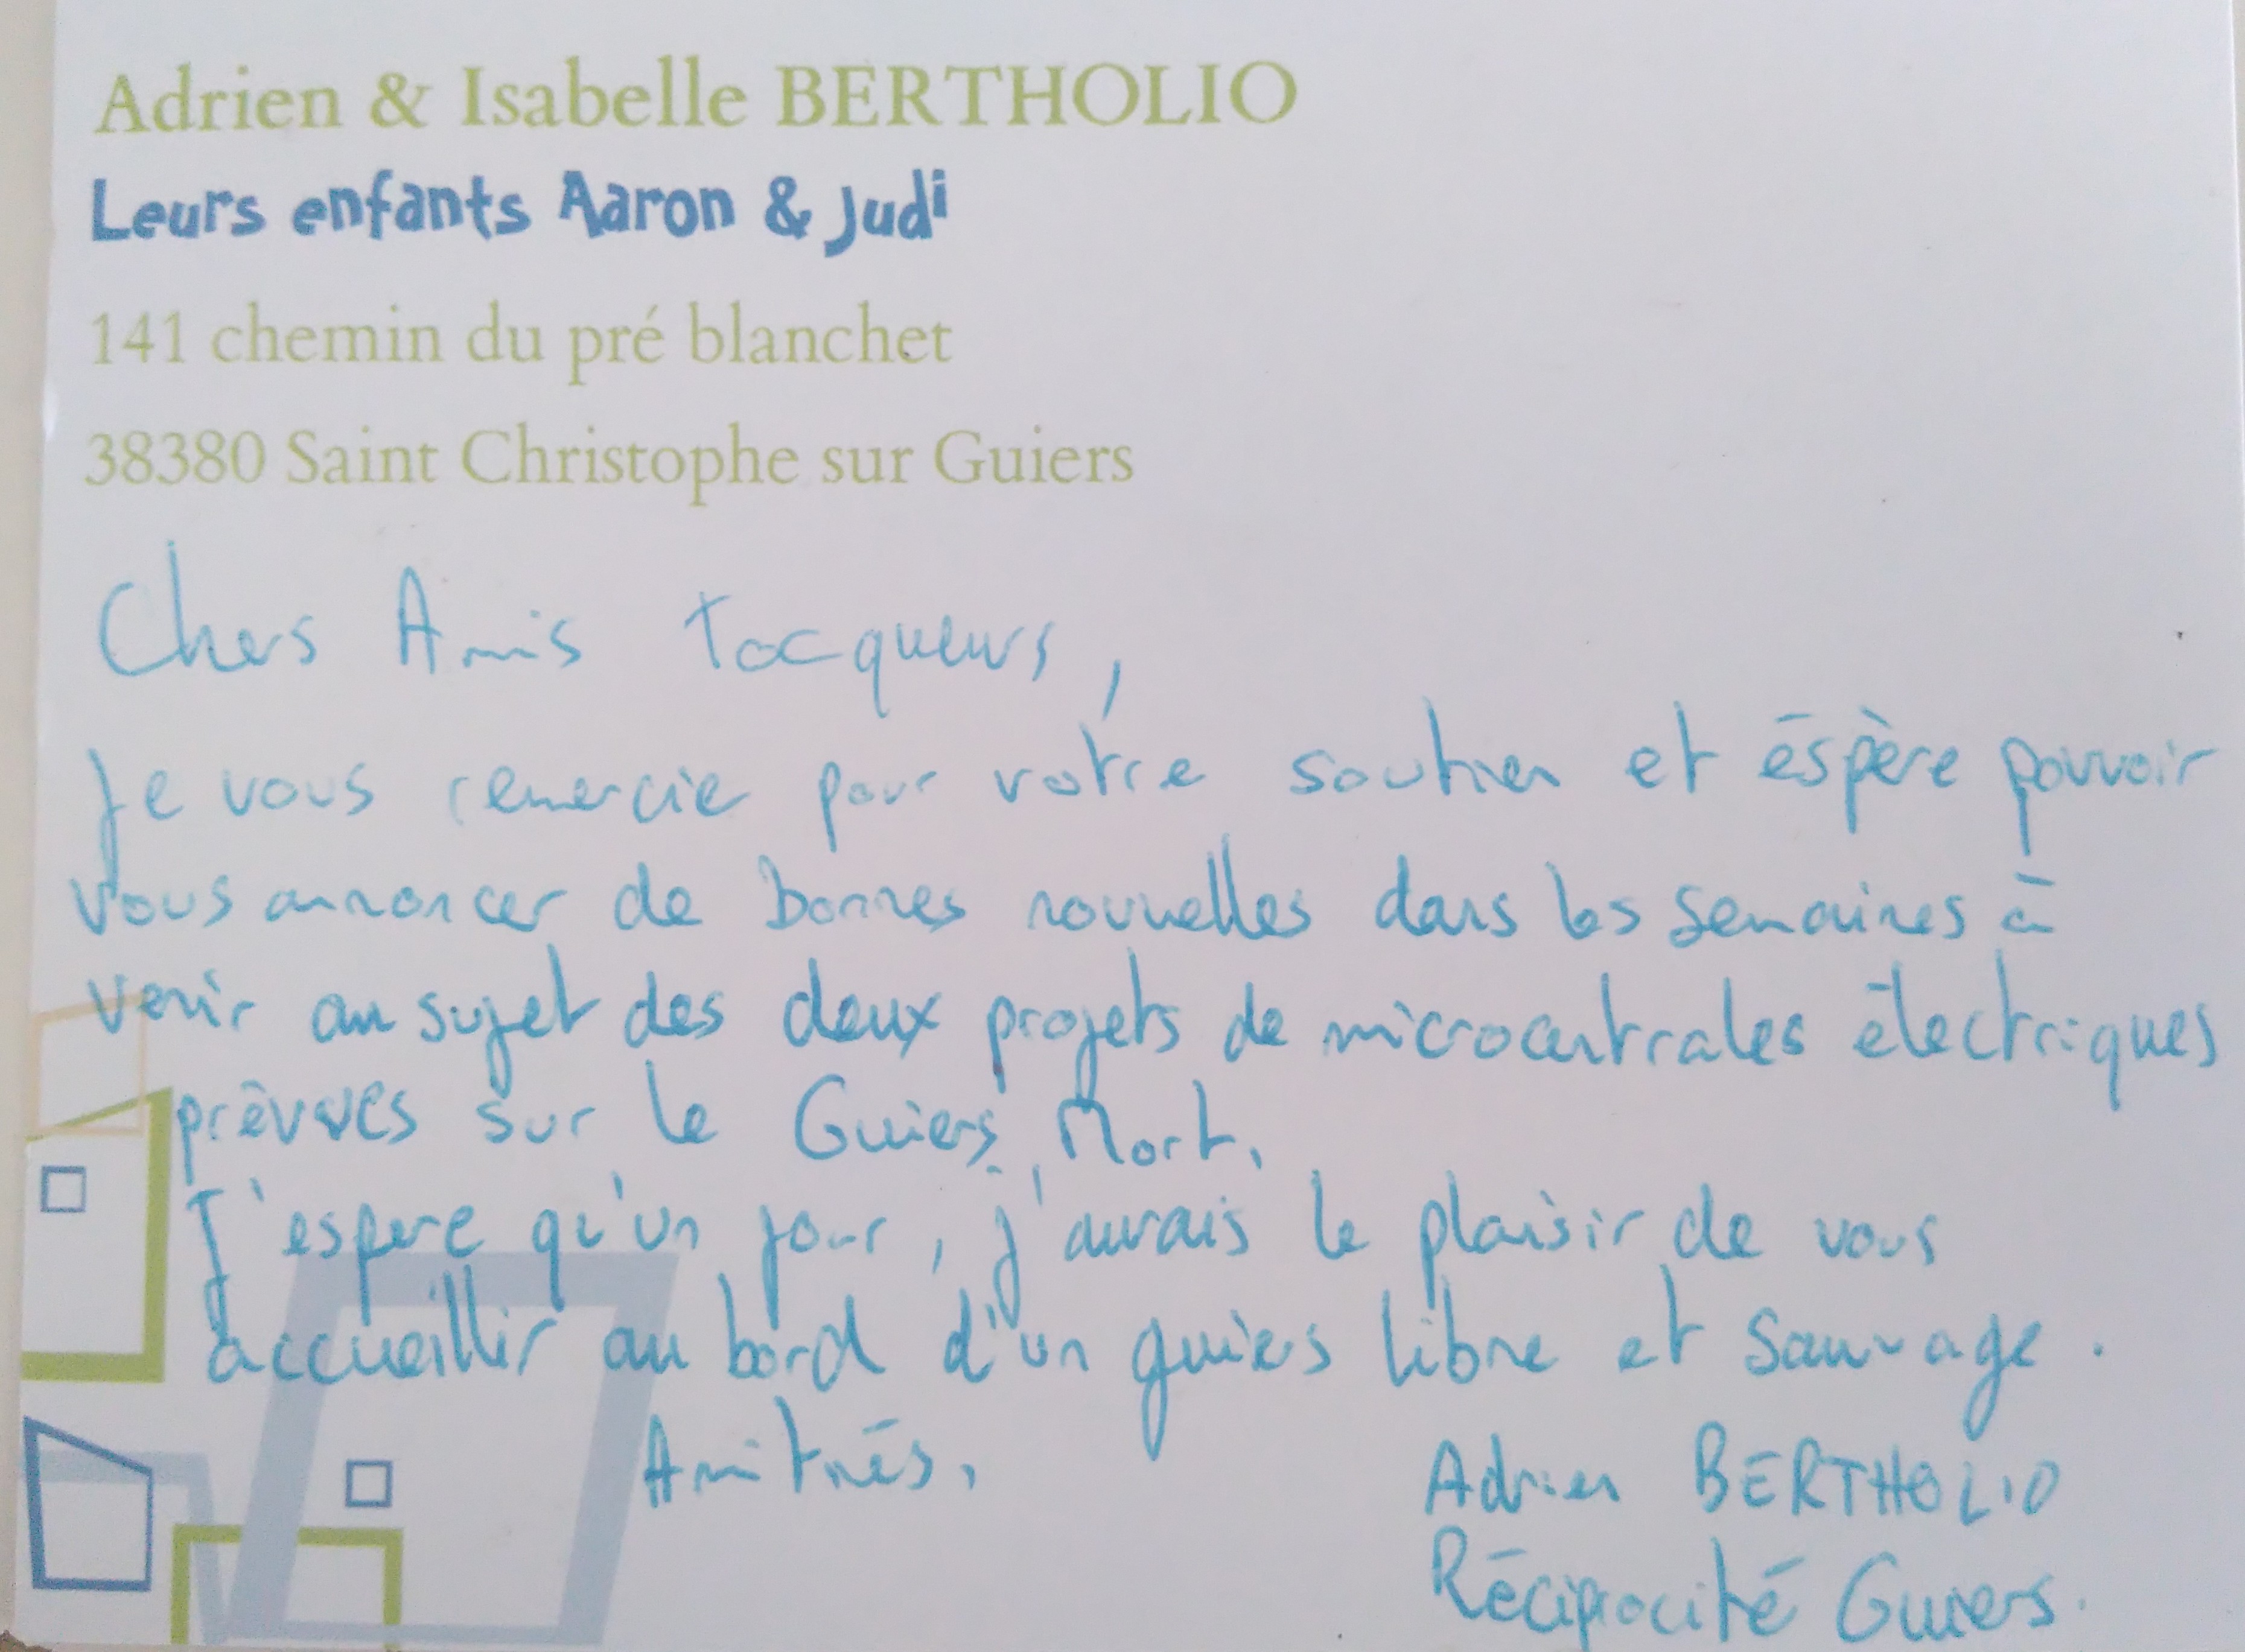 Adrien & Isabelle BERTHOLIO
Leurs enfants Aaron & Judi
141 chemin du pré blanchet
38380 Saint Christophe sur Guiers
Chers Amis tocqueurs,
Je vous remercie pour votre soutien et éspère pouvoir
vous annoncer de bonnes nouvelles dans les semaines à
venir au sujet des deux projets de microcentrales électriques
prévues sur le Guiers Mort.
J'espere qu'un jour, j'aurais le plaisir de vous
accueillir au bord d'un guiers libre et sauvage.
Amitiés,
Adrien BERTHOLIO
Réciprocité Guiers.